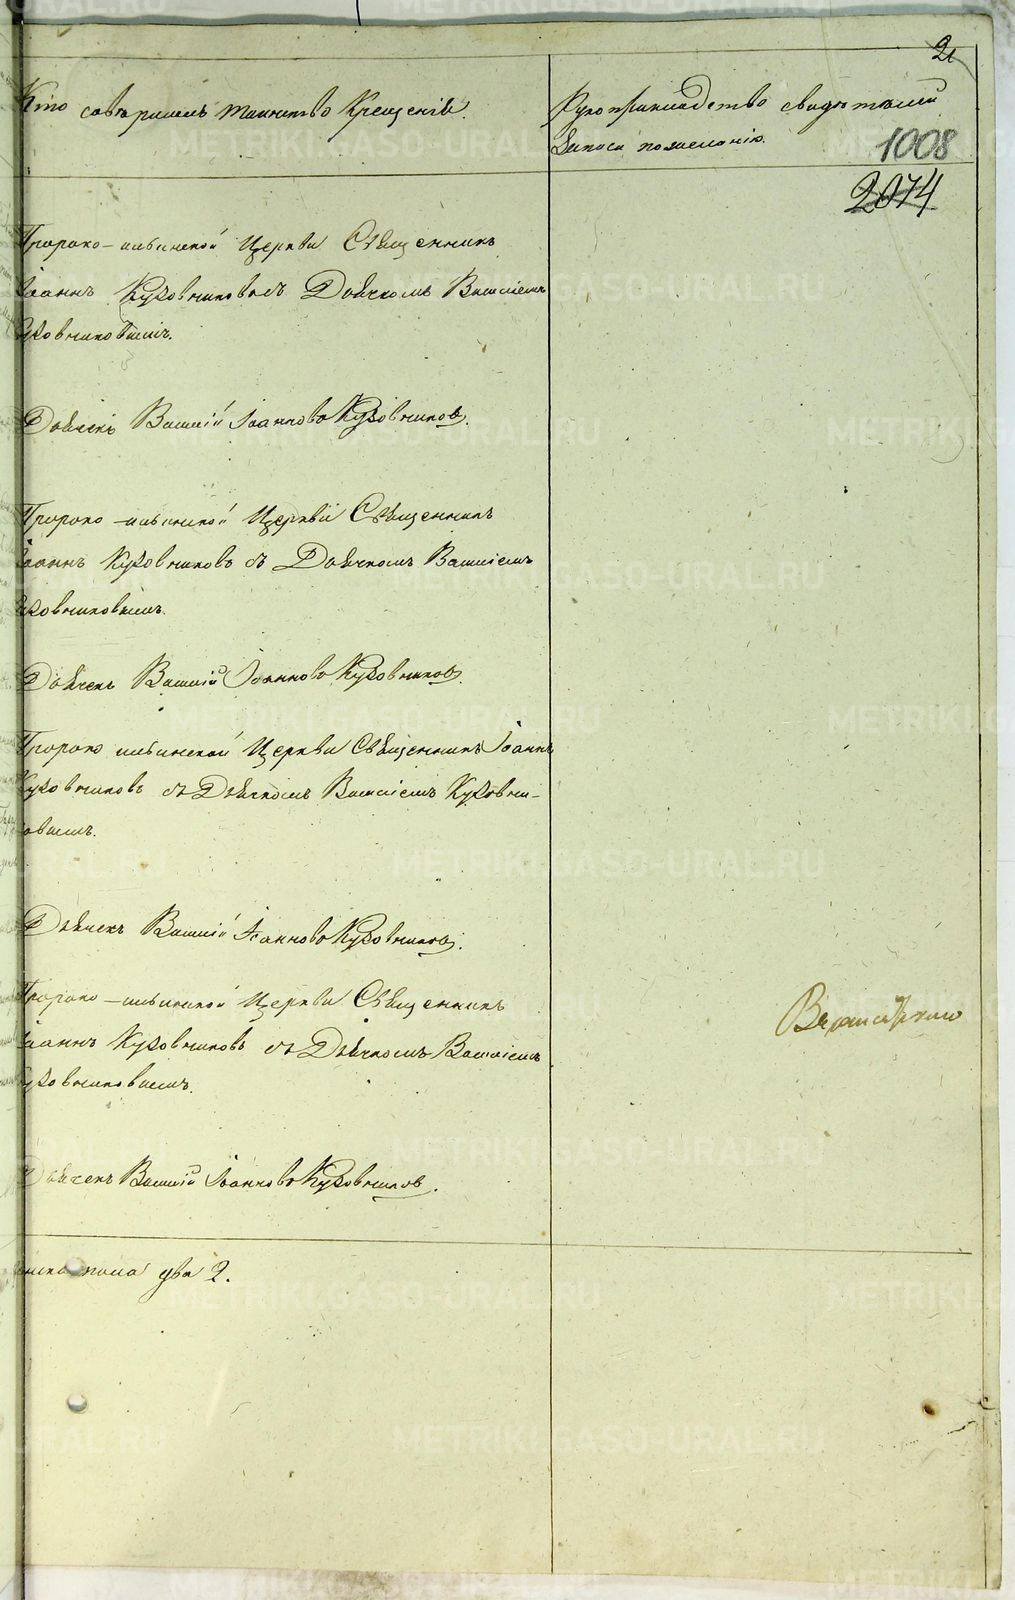 2
Кто совершалъ таинство Крещенія.
Рукоприкладство свидѣтелей
записи по желанію.
1008
2074
Пророко-ильинской Церкви Священникъ
Іоаннъ Кузовниковъ съ Дьячкомъ Василіемъ
Кузовниковымъ.
Дьячекъ Василій Іоанновъ Кузовниковъ.
Пророко-ильинской Церкви Священникъ
Іоаннъ Кузовниковъ съ Дьячкомъ Василіемъ
Кузовниковымъ.
Дьячекъ Василій Іоанновъ Кузовниковъ.
Пророко ильинской Церкви Священникъ Іоаннъ
Кузовниковъ съ Дьячкомъ Василіемъ Кузовни-
ковымъ.
Дьячекъ Василій Іоанновъ Кузовниковъ.
Пророко-ильинской Церкви Священникъ
Іоаннъ Кузовниковъ съ Дьячкомъ Василіемъ
Кузовниковымъ.
Дьячекъ Василій Іоанновъ Кузовниковъ.
пола два 2.
METRIKI.GASO-URAL.RU